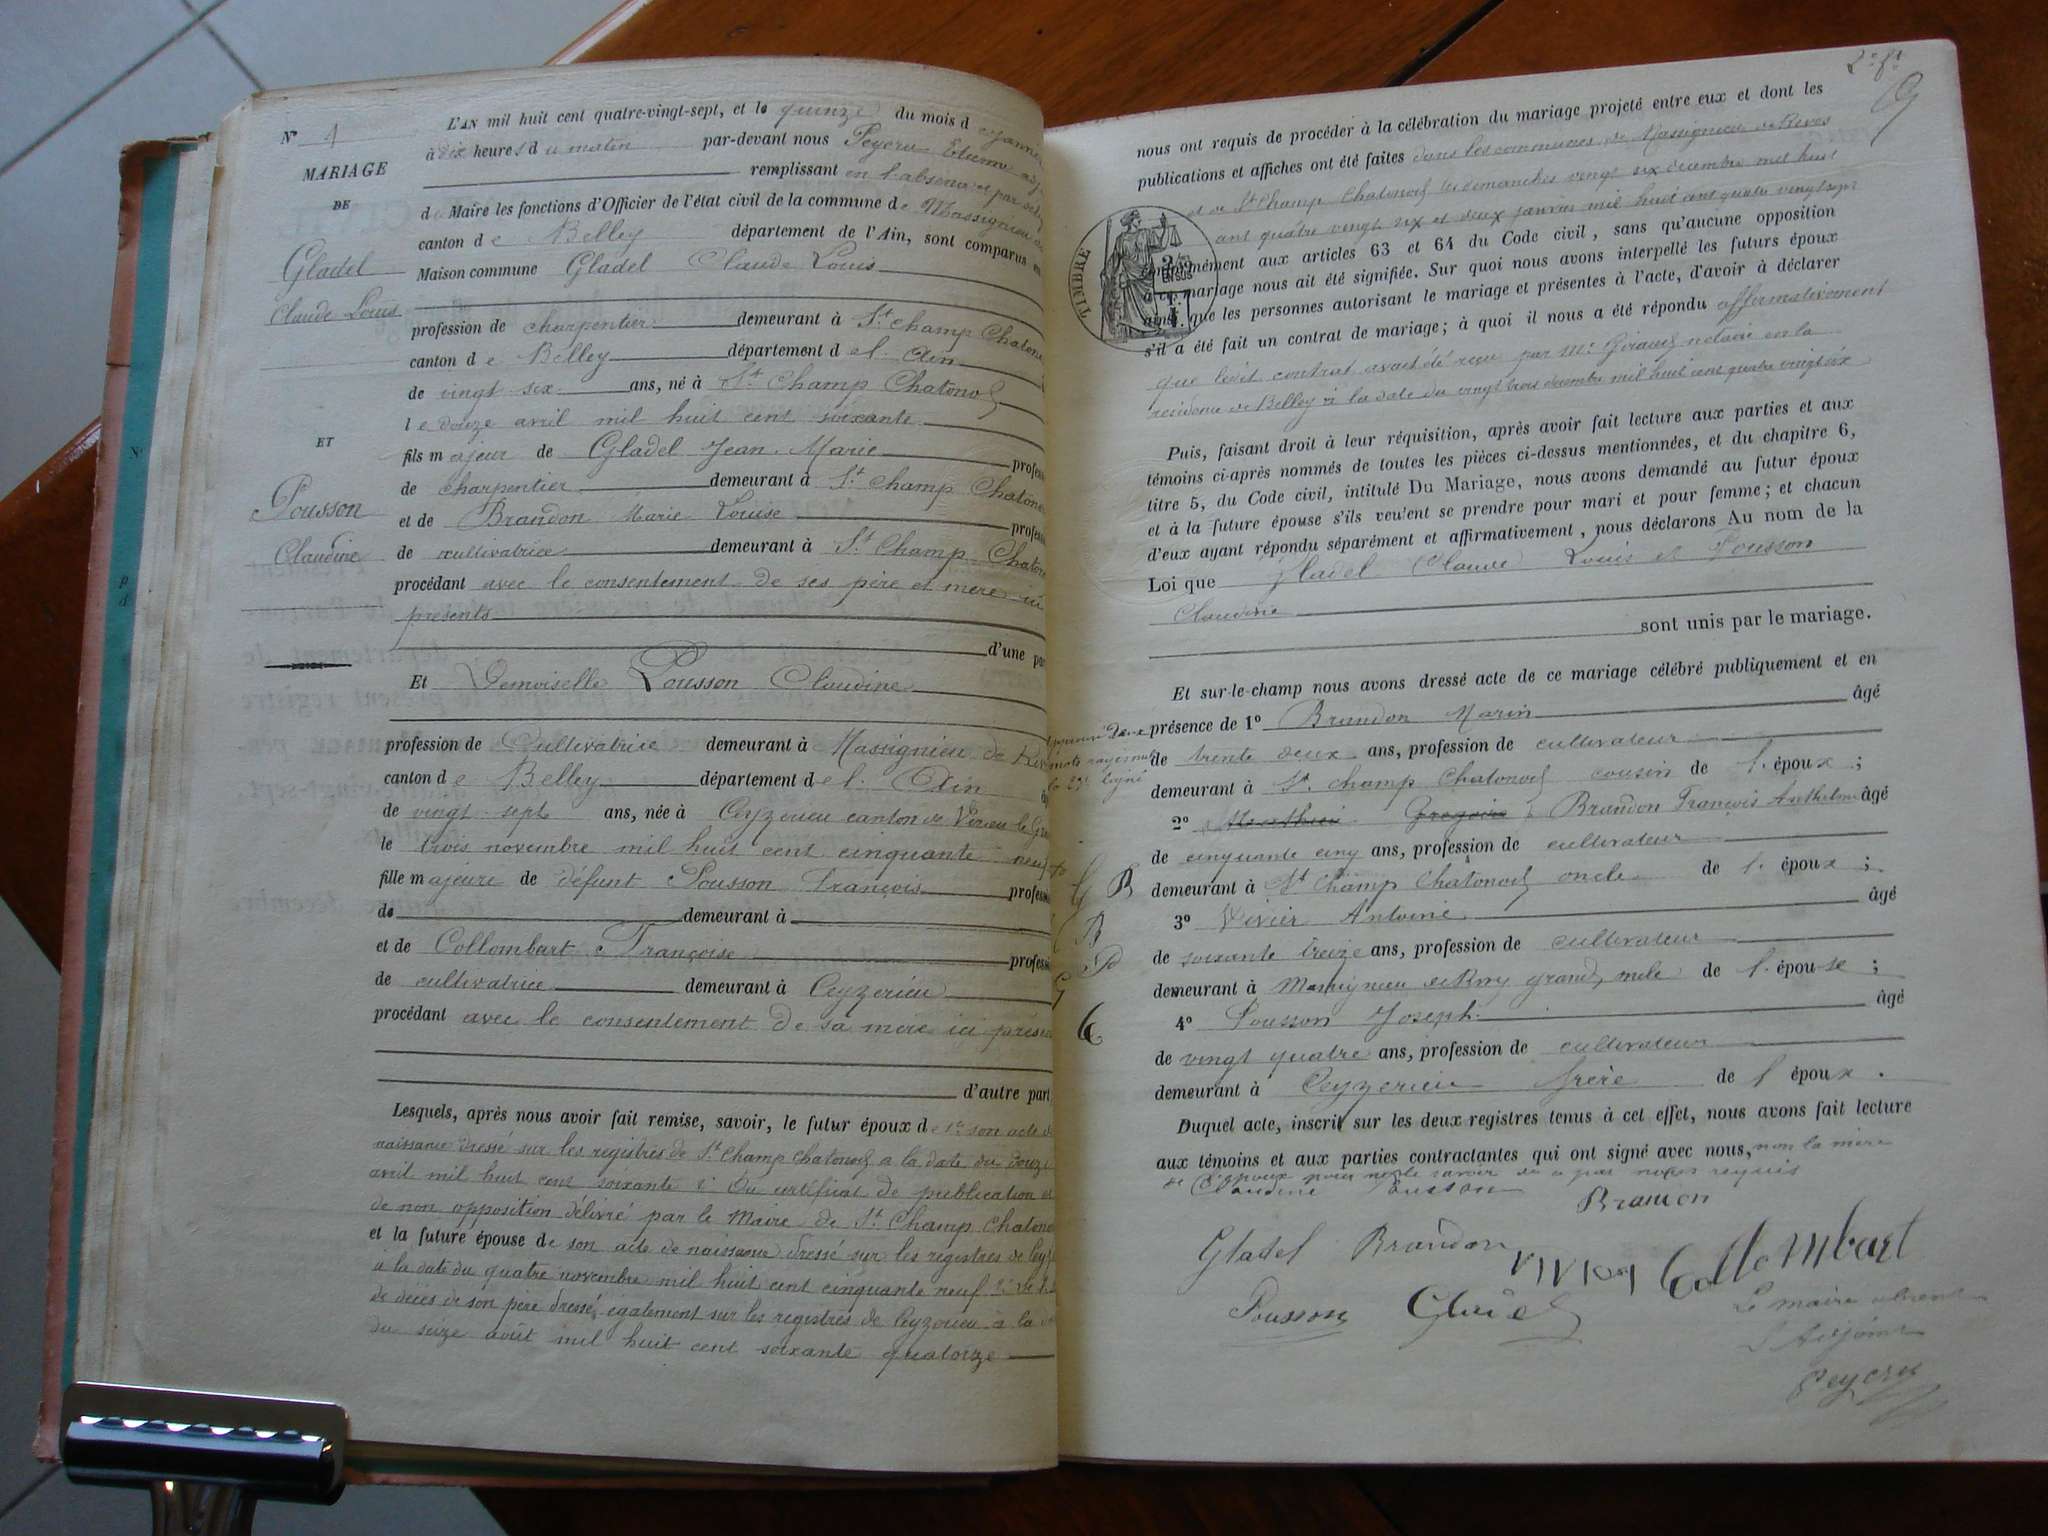 N° 1
MARIAGE
DE
Gladel
Claude Louis
ET
Pousson
Claudine
L'AN mil huit cent quatre-vingt-sept, et le quinze du mois de janvier
à dix heures du matin par-devant nous Peycru Etienne adj
remplissant en l'absence et par
du Maire les fonctions d'Officier de l'état civil de la commune de Massignieu de
canton de Belley département de l'Ain, sont comparus en
Maison commune Gladel Claude Louis
profession de charpentier demeurant à St Champ Chatono
canton de Belley département de l'Ain
de vingt six ans, né à St Champ Chatonod
le douze avril mil huit cent soixante
fils majeur de Gladel Jean Marie profess
de charpentier demeurant à St Champ Chatono
et de Brandon Marie Louise profess
de cultivatrice demeurant à St Champ Chaton
procédant avec le consentement de ses père et mère ici
présents
d'une par
Et Demoiselle Pousson Claudine
profession de Cultivatrice demeurant à Massignieu de Riv
canton de Belley département de l'Ain
de vingt sept ans, née à Ceyzerieu canton de Virieu le Gr
le trois novembre mil huit cent cinquante neuf
fille majeure de défunt Pousson François profess
de demeurant à
et de Collombart Françoise professi
de cultivatrice demeurant à Ceyzerieu
procédant avec le consentement de sa mère ici présen
d'autre part
Lesquels, après nous avoir fait remise, savoir, le futur époux de 1° son acte de
naissance dressé sur les registres de St Champ Chatonod à la date du douze
avril mil huit cent soixante 2° du certificat de publication et
de non opposition délivré par le Maire de St Champ Chatono
et la future épouse de son acte de naissance dressé sur les registres de Ceyz
à la date du quatre novembre mil huit cent cinquante neuf 2° de
de décès de son père dressé également sur les registres de Ceyzerieu à la d
du seize août mil huit cent soixante quatorze
2e ft
nous ont requis de procéder à la célébration du mariage projeté entre eux et dont les
publications et affiches ont été faites dans les communes de Massignieu de Rives
et de St Champ Chatonod les dimanches vingt six décembre mil huit
cent quatre vingt six et deux janvier mil huit cent quatre vingt sept
conformément aux articles 63 et 64 du Code civil, sans qu'aucune opposition
à ce mariage nous ait été signifiée. Sur quoi nous avons interpellé les futurs époux
ainsi que les personnes autorisant le mariage et présentes à l'acte, d'avoir à déclarer
s'il a été fait un contrat de mariage; à quoi il nous a été répondu affirmativement
que ledit contrat avait été reçu par Me Giraud notaire en la
résidence de Belley à la date du vingt trois décembre mil huit cent quatre vingt six
TIMBRE
Puis, faisant droit à leur réquisition, après avoir fait lecture aux parties et aux
témoins ci-après nommés de toutes les pièces ci-dessus mentionnées, et du chapitre 6,
titre 5, du Code civil, intitulé Du Mariage, nous avons demandé au futur époux
et à la future épouse s'ils veulent se prendre pour mari et pour femme; et chacun
d'eux ayant répondu séparément et affirmativement, nous déclarons Au nom de la
Loi que Gladel Claude Louis et Pousson
Claudine
sont unis par le mariage.
Et sur-le-champ nous avons dressé acte de ce mariage célébré publiquement et en
présence de 1° Brandon Marin âgé
de trente deux ans, profession de cultivateur
demeurant à St Champ Chatonod cousin de l'époux;
2° Mathieu Gregoire Brandon François Anthelme âgé
de cinquante cinq ans, profession de cultivateur
demeurant à St Champ Chatonod oncle de l'époux;
3° Vivier Antoine âgé
de soixante treize ans, profession de cultivateur
demeurant à Massignieu de Rives grand oncle de l'épouse;
4° Pousson Joseph âgé
de vingt quatre ans, profession de cultivateur
demeurant à Ceyzerieu frère de l'époux.
approuvé deux
mots rayés nuls
ligne
G B
B
P
G
C
Duquel acte, inscrit sur les deux registres tenus à cet effet, nous avons fait lecture
aux témoins et aux parties contractantes qui ont signé avec nous, non la mère
de l'époux pour ne le savoir de ce par nous requis
Claudine Pousson
Brandon
Gladel Brandon
Vivier Collombart
Pousson Gladel
Le maire absent
L'Adjoint
Peycru